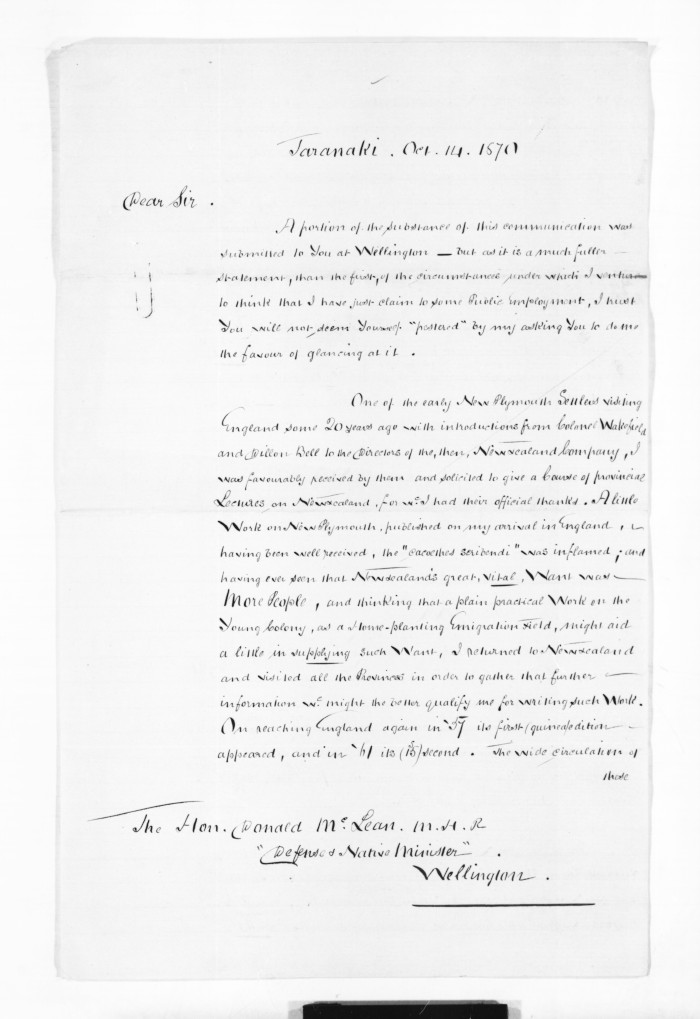 Taranaki. Oct. 14. 1870
Dear Sir.
A portion of the substance of this communication was
submitted to You at Wellington — but as it is a much fuller —
statement, than the first, of the circumstances under which I venture
to think that I have just claim to some Public Employment, I trust
You will not deem Yourself "pestered" by my asking You to do me
the favour of glancing at it.
One of the early New Plymouth Settlers visiting
England some 20 years ago with introductions from Colonel Wakefield
and Dillon Bell to the Directors of the, then, New Zealand Company, I
was favourably received by them and solicited to give a Course of provincial
Lectures on New Zealand, for wh. I had their official thanks. A little
Work on New Plymouth, published on my arrival in England, &
having been well received, the "cacoethes scribendi" was inflamed; and
having ever seen that New Zealand's great, vital, Want was —
More People, and thinking that a plain practical Work on the
Young Colony, as a Home-planting Emigration Field, might aid
a little in supplying such Want, I returned to New Zealand
and visited all the Provinces in order to gather that further —
information wh. might the better qualify me for writing such Work.
On reaching England again in '57 its first (guinea) edition —
appeared, and in '61 its (15/) second. The wide circulation of
these
The Hon. Donald McLean. M.H.R
"Defense & Native Minister".
Wellington.